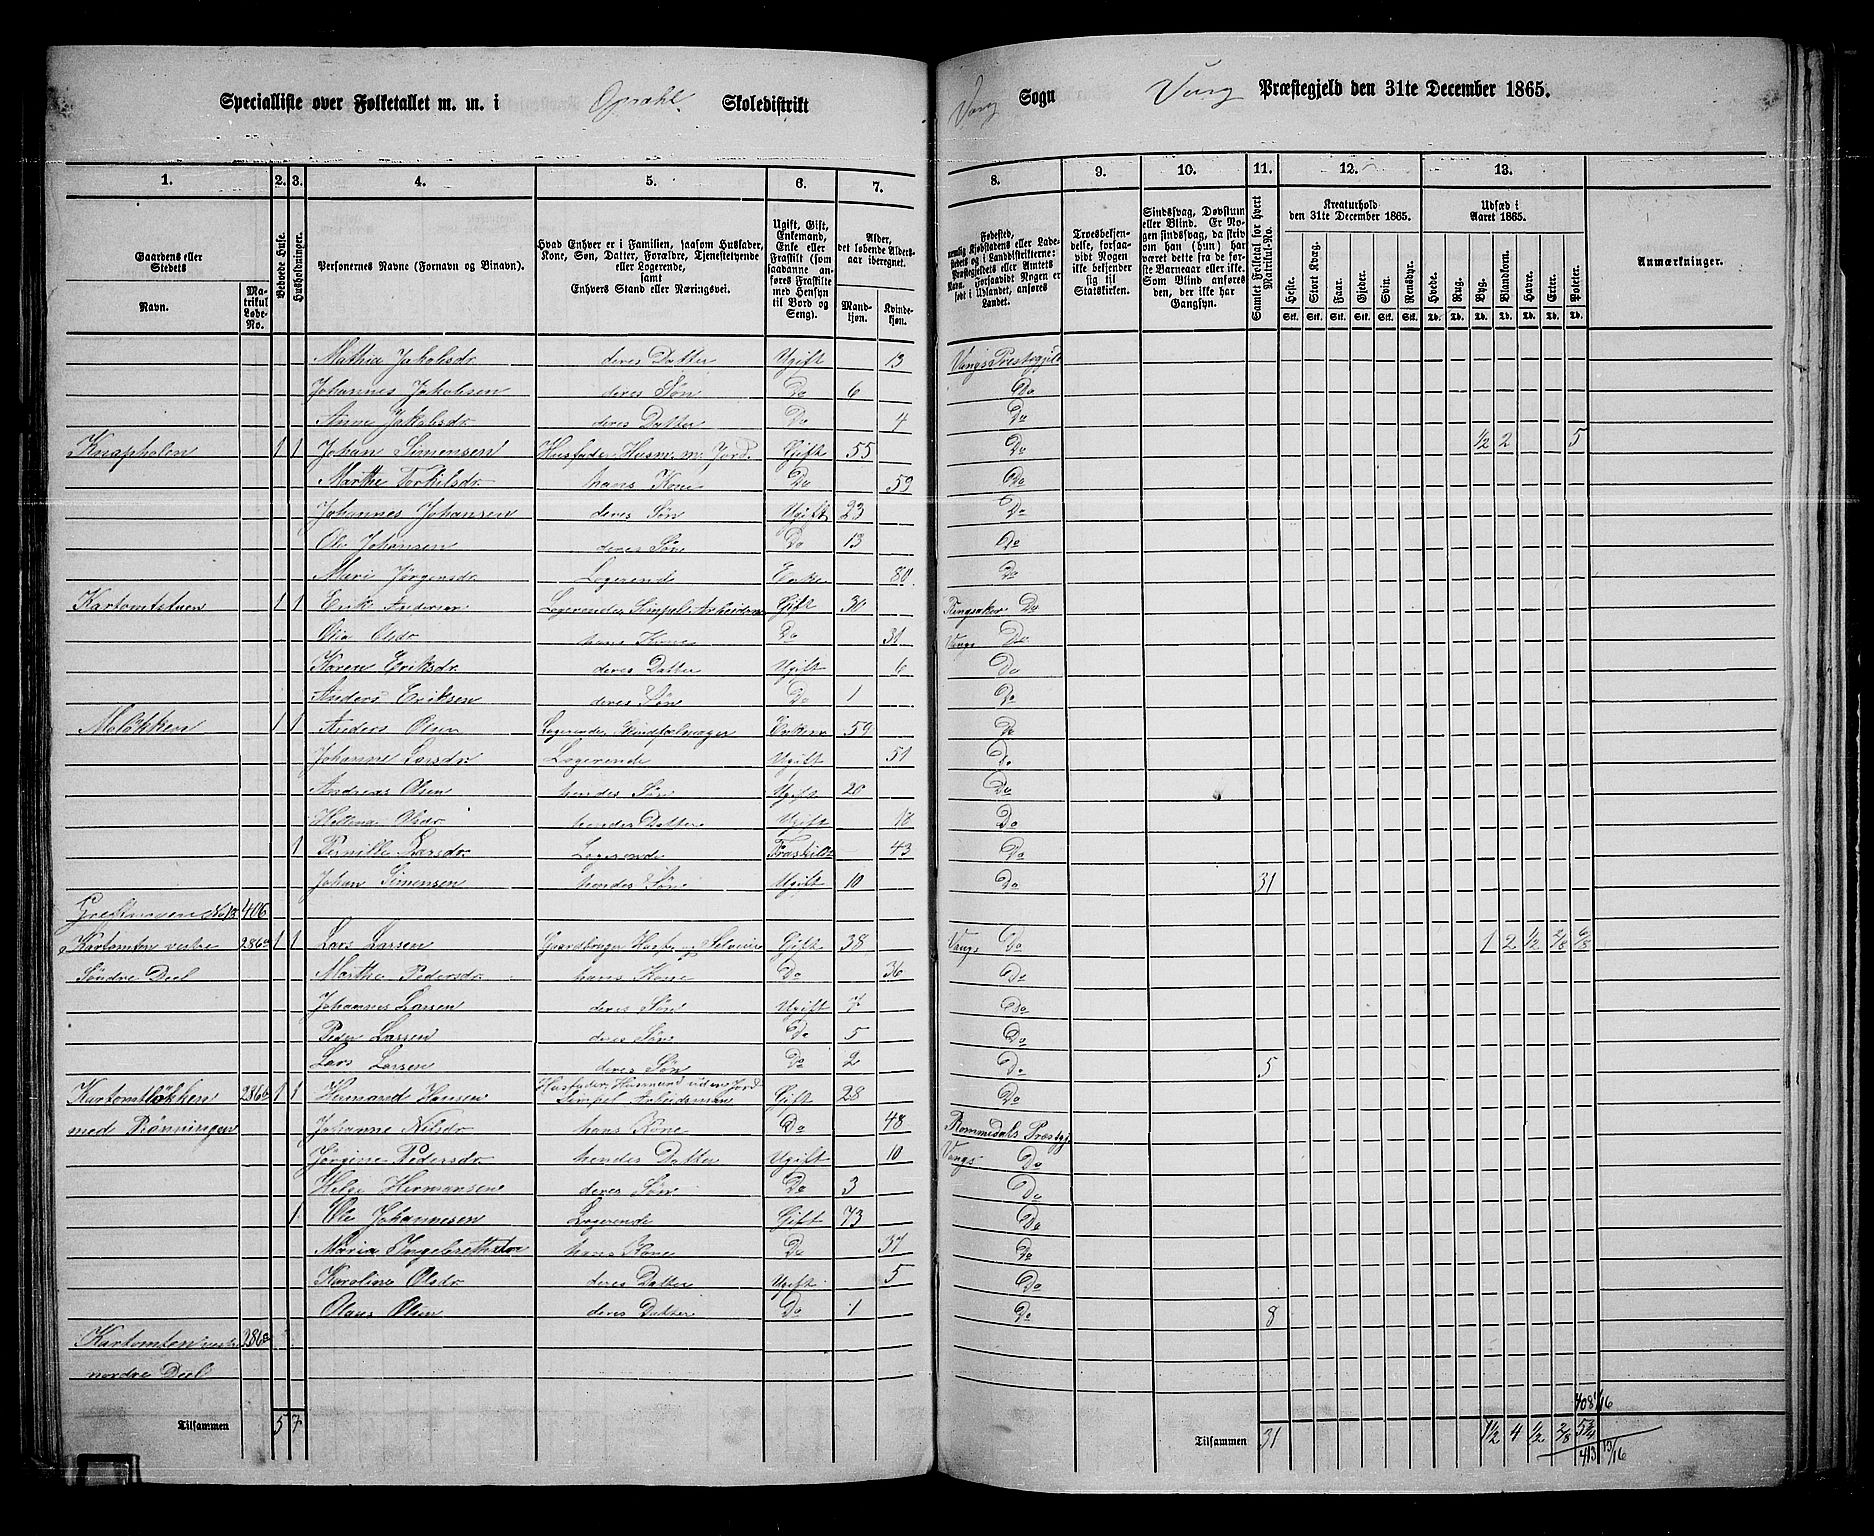 Specialliste over Folketallet m. m. i Opsahl Skoledistrikt Vang Sogn Vang Præstegjeld den 31te December 1865.
1. 2. 3. 4. 5. 6. 7. 8. 9. 10. 11. 12. 13.
Gaardens eller Stedets Navn. Matrikul Løbe-No. Beboede Huse. Husholdninger. Personernes Navne (Fornavn og Binavn). Hvad Enhver er i Familien, saasom Husfader, Kone, Søn, Datter, Forældre, Tjenestetyende eller Logerende, samt Enhvers Stand eller Næringsvei. Ugift, Gift, Enkemand, Enke eller Fraskilt (som saadanne anføres Fraskilte med Hensyn til Bord og Seng). Alder, det løbende Aldersaar iberegnet. Mandkjøn. Kvindekjøn.
Fødested, nemlig Kjøbstadens eller Ladestedets og i Landdistrikterne: Præstegjeldets eller Amtets Navn. Forsaavidt Nogen er født i Udlandet, anføres Landet. Troesbekjendelse, forsaavidt Nogen ikke bekjender sig til Statskirken. Sindssvag, Døvstum eller Blind. Er Nogen sindssvag, da skrives om han (hun) har været dette fra de første Barneaar eller ikke. Som Blind anføres den, der ikke har Gangsyn. Samlet Folketal for hvert Matrikul-No. Kreaturhold den 31te December 1865. Udsæd i Aaret 1865. Anmærkninger.
Heste. Stort Kvæg. Faar. Gjeder. Svin. Rensdyr. Hvede. Rug. Byg. Blandkorn. Havre. Erter. Poteter.
Stk. Stk. Stk. Stk. Stk. Stk. Td. Td. Td. Td. Td. Td. Td.
Mathia Jakobsdr. deres Datter Ugift 13 Vangs Præstegjeld
Johannes Jakobsen deres Søn Do 6 Do
Anne Jakobsdr. deres Datter Do 4 Do
Knapholen 1 1 Johan Simensen Husfader Husm. m. Jord. Gift 55 Do ½ 2 5
Marthe Torkilsdr. hans Kone Do 59 Do
Johannes Johansen deres Søn Ugift 23 Do
Ole Johansen deres Søn Do 13 Do
Mari Jørgensdr. Logerende Enke 80 Do
Kartomtstuen 1 1 Erik Andersen Logerende Simpel Arbeidsm Gift Ringsaker Do
Olia Olsdr. hans Kone Do 31 Vangs Do
Karen Eriksdr. deres Datter Ugift 6 Do
Anders Eriksen deres Søn Do 1 Do
Moløkken 1 1 Anders Olsen Logerende, Skindfælmager Enkem 59 Do
Johanne Larsdr. Logerende Ugift 51 Do
Andreas Olsen hendes Søn Ugift 20 Do
Hellena Olsdr. hendes Datter Ugift 18 Do
1 Pernille Larsdr. Logerende Fraskilt 43 Do
Johan Simensen hendes Søn Ugift 10 Do 31
No 12 406
Kartomten vestre 286a 1 1 Lars Larsen Gaardbruger Husf. og Selveier Gift 38 Vangs Do 1 2 ½ 2/8 6/8
Søndre Deel Marthe Pedersdr. hans Kone Do 36 Do
Johannes Larsen deres Søn Ugift 7 Do
Peder Larsen deres Søn Do 5 Do
Lars Larsen deres Søn Do 2 Do 5
Kartomtløkken 286b 1 1 Hermand Hansen Husfader, Husmand uden Jord Simpel Arbeidsmand Gift 28 Do
med Rønningen Johanne Nilsdr. hans Kone Do 48 Rommedals Præstgj
Jørgine Pedersdr. hendes Datter Ugift 10 Vangs Do
Helge Hermansen deres Søn Do 3 Do
1 Ole Johannesen Logerende Gift 73 Do
Maria Ingebrethsdr hans Kone Do 37 Do
Karoline Olsdr. deres Datter Ugift 5 Do
Olaus Olsen deres Datter Do 1 Do 8
Kartomten vestre 286c
nordre Deel
408 1/16
Tilsammen 5 7 Tilsammen 31 1½ 4 ½ 2/8 5¾
413 13/16